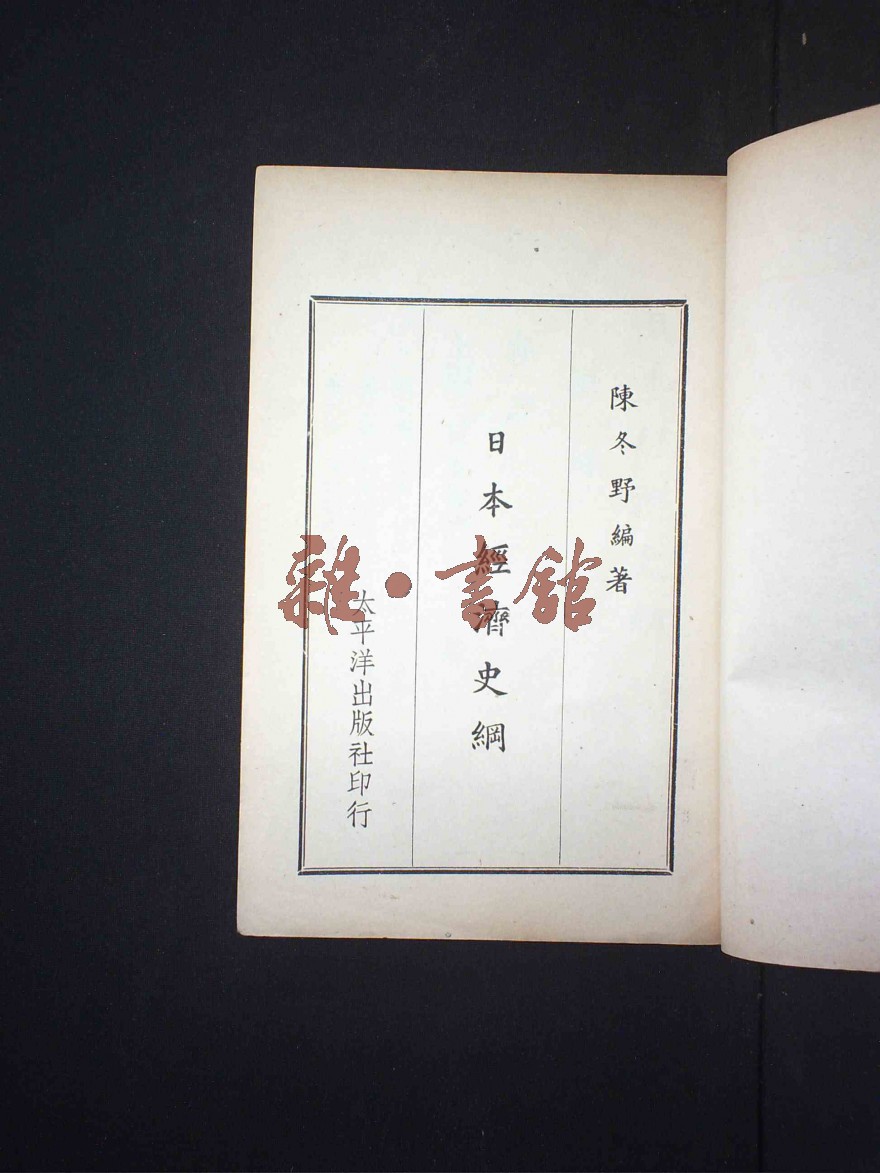 陳冬野編著
日本經濟史綱
太平洋出版社印行
雜·書館